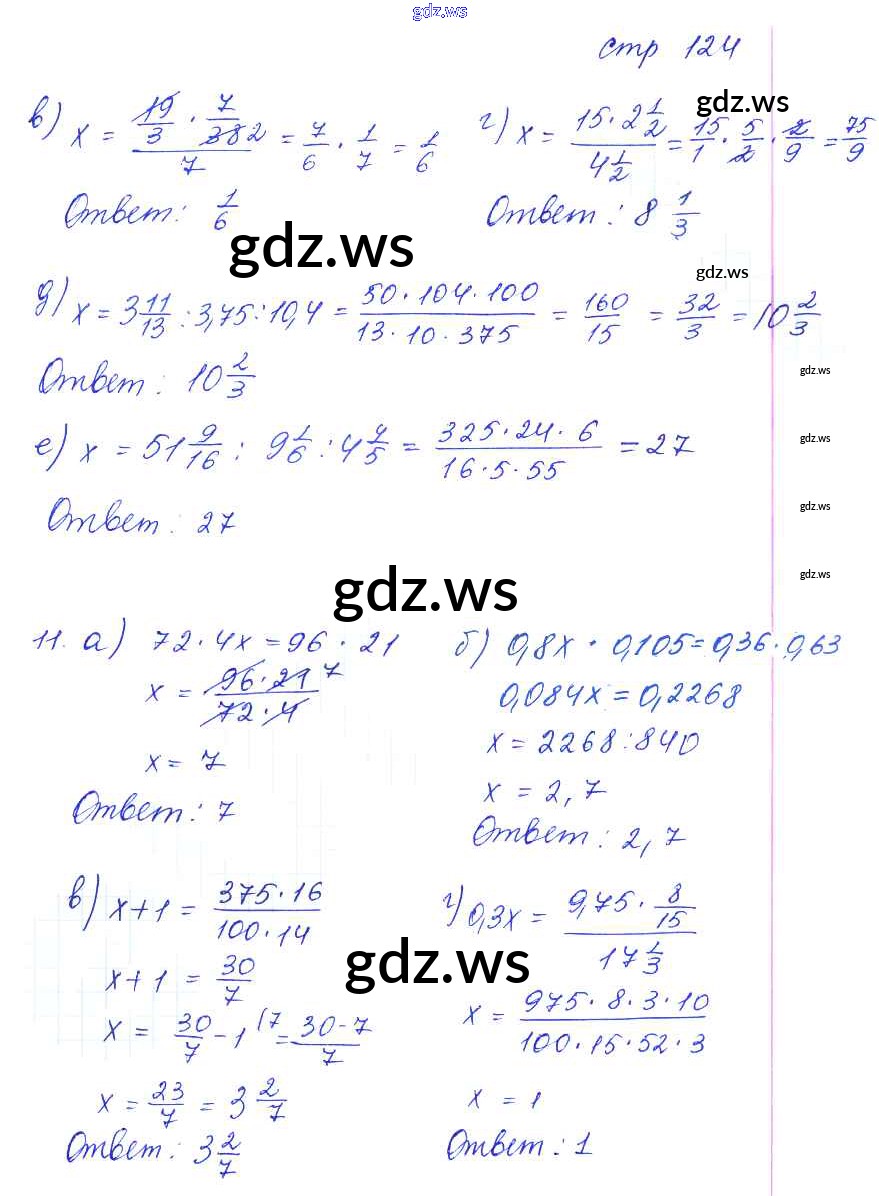 gdz.ws
стр 124
в) x = (19/3 · 7/38 2)/7 = 7/6 · 1/7 = 1/6
г) x = (15 · 2 1/2)/(4 1/2) = 15/1 · 5/2 · 2/9 = 75/9
gdz.ws
Ответ: 1/6
Ответ: 8 1/3
gdz.ws
gdz.ws
д) x = 3 11/13 : 3,75 : 10,4 = (50 · 104 · 100)/(13 · 10 · 375) = 160/15 = 32/3 = 10 2/3
Ответ: 10 2/3
gdz.ws
е) x = 51 9/16 : 9 1/6 : 4 4/5 = (325 · 24 · 6)/(16 · 5 · 55) = 27
gdz.ws
Ответ: 27
gdz.ws
gdz.ws
gdz.ws
11. а) 72 · 4x = 96 · 21
x = (96 · 21 7)/(72 · 4)
x = 7
Ответ: 7
б) 0,8x · 0,105 = 0,36 · 0,63
0,084x = 0,2268
x = 2268 : 840
x = 2,7
Ответ: 2,7
в) x + 1 = (375 · 16)/(100 · 14)
x + 1 = 30/7
x = 30/7 - 1 (7 = (30 - 7)/7
x = 23/7 = 3 2/7
Ответ: 3 2/7
gdz.ws
г) 0,3x = (9,75 · 8/15)/(17 1/3)
x = (975 · 8 · 3 · 10)/(100 · 15 · 52 · 3)
x = 1
Ответ: 1